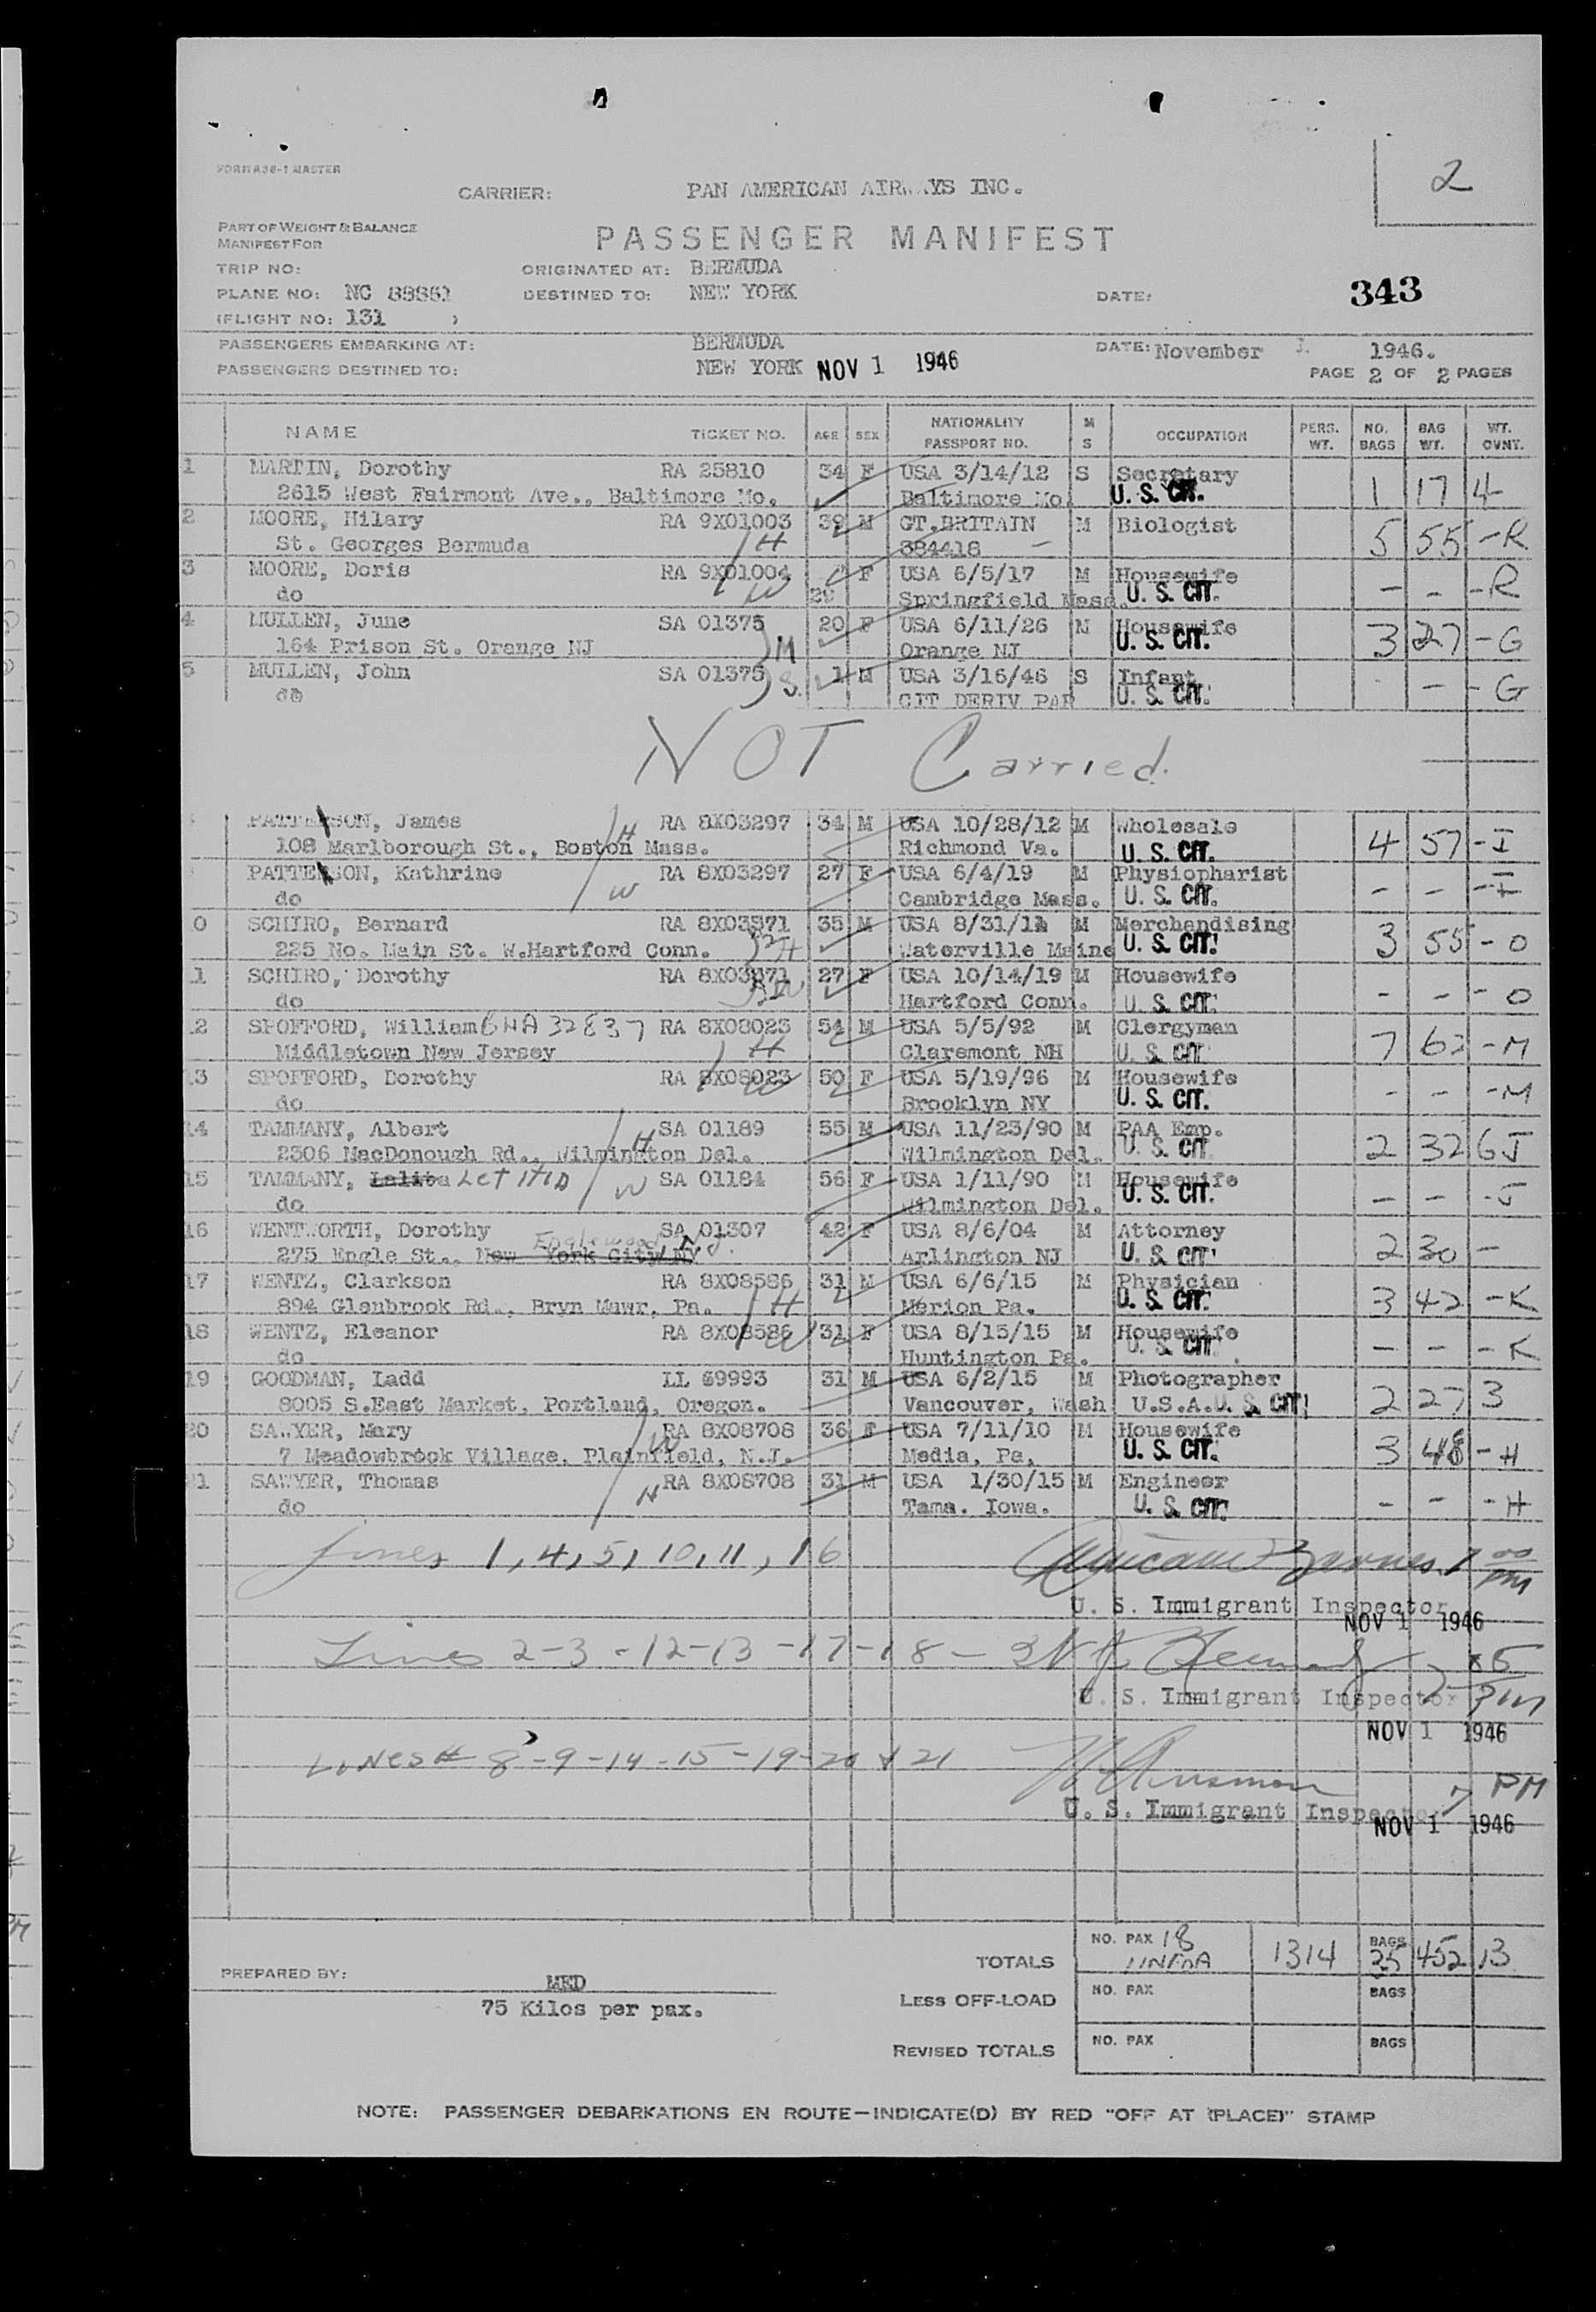 FORM A36-1 MASTER
2
CARRIER: PAN AMERICAN AIRWAYS INC.
PART OF WEIGHT & BALANCE
MANIFEST FOR
PASSENGER MANIFEST
TRIP NO: ORIGINATED AT: BERMUDA
PLANE NO: NC 88861 DESTINED TO: NEW YORK DATE: 343
(FLIGHT NO: 131 )
PASSENGERS EMBARKING AT: BERMUDA DATE: November 1. 1946.
PASSENGERS DESTINED TO: NEW YORK NOV 1 1946 PAGE 2 OF 2 PAGES
NAME TICKET NO. AGE SEX NATIONALITY PASSPORT NO. M S OCCUPATION PERS. WT. NO. BAGS BAG WT. WT. OVNT.
1 MARTIN, Dorothy RA 25810 34 F USA 3/14/12 S Secretary
2615 West Fairmont Ave., Baltimore Mo. Baltimore Mo. U. S. CIT. 1 17 4
2 MOORE, Hilary RA 9X01003 39 M GT.BRITAIN M Biologist
St. Georges Bermuda H 384418 — 5 55 - R
3 MOORE, Doris RA 9X01004 F USA 6/5/17 M Housewife
do W 29 Springfield Mass. U. S. CIT. - - - R
4 MULLEN, June SA 01375 20 F USA 6/11/26 M Housewife
164 Prison St. Orange NJ M Orange NJ U. S. CIT. 3 27 - G
5 MULLEN, John SA 01375 1 M USA 3/16/46 S Infant
do S. CIT DERIV PAR U. S. CIT. - - G
NOT Carried.
PATTERSON, James RA 8X03297 34 M USA 10/28/12 M Wholesale
108 Marlborough St., Boston Mass. H Richmond Va. U. S. CIT. 4 57 - I
PATTERSON, Kathrine RA 8X03297 27 F USA 6/4/19 M Physiopharist
do W Cambridge Mass. U. S. CIT. - - - I
0 SCHIRO, Bernard RA 8X03871 35 M USA 8/31/11 M Merchandising
225 No. Main St. W.Hartford Conn. H Waterville Maine U. S. CIT. 3 55 - O
11 SCHIRO, Dorothy RA 8X03871 27 F USA 10/14/19 M Housewife
do W Hartford Conn. U. S. CIT. - - - O
12 SPOFFORD, William GHA 32837 RA 8X08023 54 M USA 5/5/92 M Clergyman
Middletown New Jersey H Claremont NH U. S. CIT 7 63 - M
13 SPOFFORD, Dorothy RA 8X08023 50 F USA 5/19/96 M Housewife
do W Brooklyn NY U. S. CIT. - - - M
14 TAMMANY, Albert SA 01189 55 M USA 11/23/90 M PAA Emp.
2306 MacDonough Rd., Wilmington Del. H Wilmington Del. U. S. CIT 2 32 6 J
15 TAMMANY, Lalita LETITIA SA 01184 56 F USA 1/11/90 M Housewife
do W Wilmington Del. U. S. CIT. - - - J
16 WENTWORTH, Dorothy SA 01307 42 F USA 8/6/04 M Attorney
275 Engle St., New York City NY Englewood N.J. Arlington NJ U. S. CIT 2 30 -
17 WENTZ, Clarkson RA 8X08586 31 M USA 6/6/15 M Physician
894 Glenbrook Rd., Bryn Mawr, Pa. H Merion Pa. U. S. CIT. 3 42 - K
18 WENTZ, Eleanor RA 8X08586 31 F USA 8/15/15 M Housewife
do W Huntington Pa. U. S. CIT. - - - K
19 GOODMAN, Ladd LL 69993 31 M USA 6/2/15 M Photographer
8005 S.East Market, Portland, Oregon. Vancouver, Wash U.S.A. U. S. CIT. 2 27 3
20 SAWYER, Mary RA 8X08708 36 F USA 7/11/10 M Housewife
7 Meadowbrook Village, Plainfield, N.J. W Media, Pa. U. S. CIT. 3 48 - H
21 SAWYER, Thomas RA 8X08708 31 M USA 1/30/15 M Engineer
do H Tama. Iowa. U. S. CIT. - - - H
Lines 1, 4, 5, 10, 11, 16 7 00 PM
U. S. Immigrant Inspector
NOV 1 1946
Lines 2-3-12-13-17-18-
U. S. Immigrant Inspector PM
NOV 1 1946
LiNes # 8-9-14-15-19-20 & 21
7 PM
U. S. Immigrant Inspector
NOV 1 1946
TOTALS NO. PAX 18 1 INFA 1314 BAGS 35 452 13
PREPARED BY: MED
75 Kilos per pax.
LESS OFF-LOAD NO. PAX BAGS
REVISED TOTALS NO. PAX BAGS
NOTE: PASSENGER DEBARKATIONS EN ROUTE—INDICATE(D) BY RED "OFF AT (PLACE)" STAMP